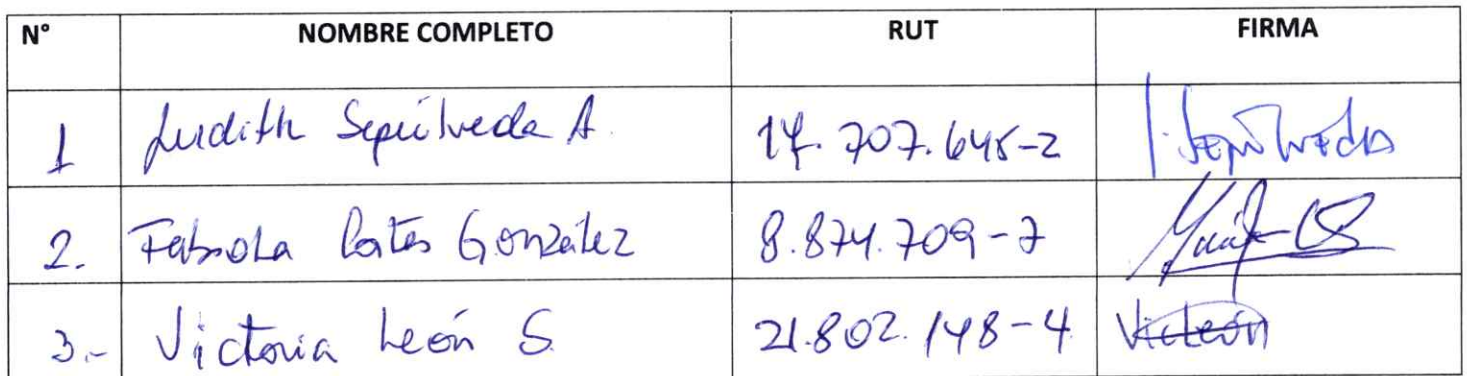 N° NOMBRE COMPLETO RUT FIRMA
1 Judith Sepúlveda A. 17.707.645-2 J. Sepúlveda
2. Fabiola Cortes González 8.874.709-7
3.- Victoria León S. 21.802.148-4 VicLeón